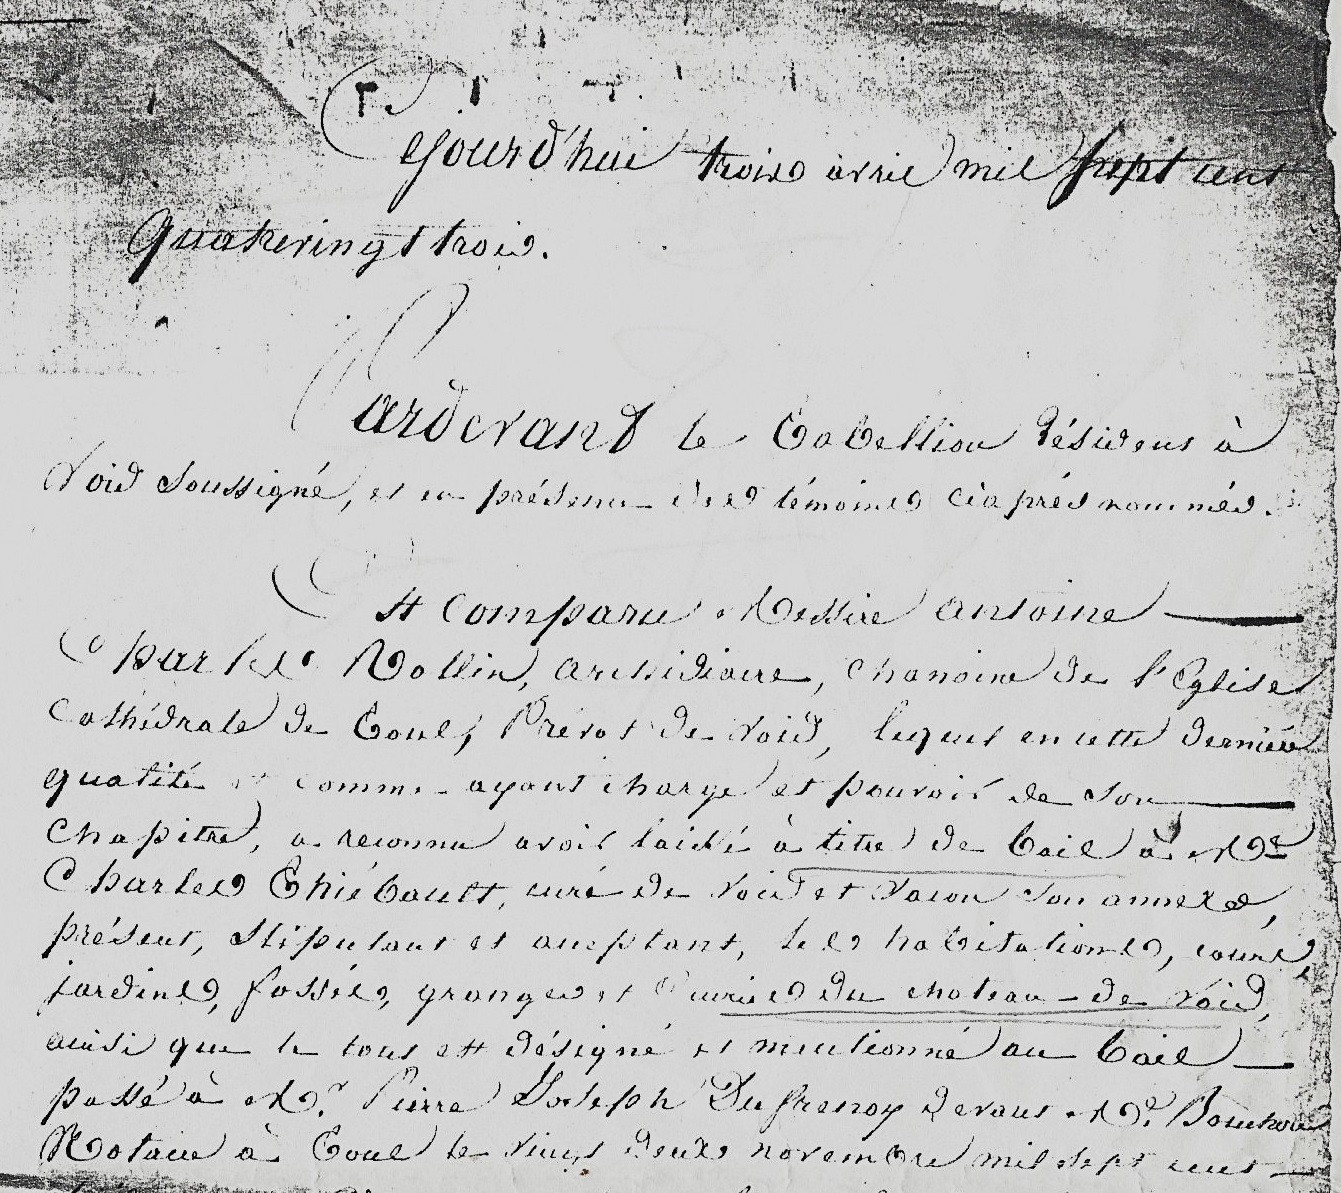 Cejourd'hui trois avril mil sept cent
quatrevingt trois.
Pardevant le Tabellion Résident à
Void soussigné, et en présence des témoins cy après nommés.
Est comparu Messire Antoine
Charles Rollin, archidiacre, chanoine de l'Eglise
Cathédrale de Toul, Prévot de Void, lequel en cette derniere
qualité et comme ayant charge et pouvoir de son
Chapitre, a reconnu avoir laissé à titre de bail à Me
Charles Thiébault, curé de Void et Vacon son annexe,
présent, stipulant et acceptant, les habitations, cours,
jardins, fossés, granges et Ecuries du chateau de Void,
ainsi que le tout est désigné et mentionné au bail
passé à Mr. Pierre Joseph Dufresnoy devant Me.
Notaire à Toul le vingt deux novembre mil sept cent